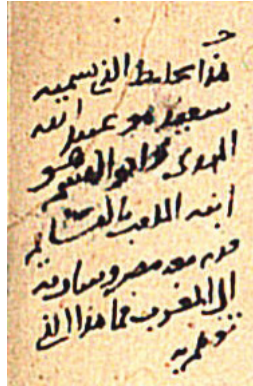 هذا تخليط الذي سميه
سعيد هو عبيد الله
المهدي وابو القسم هو
ابنه الملقب بالقائم
قدم معه مصر وسار معه
الى المغرب فما هذا الذي
توهم به